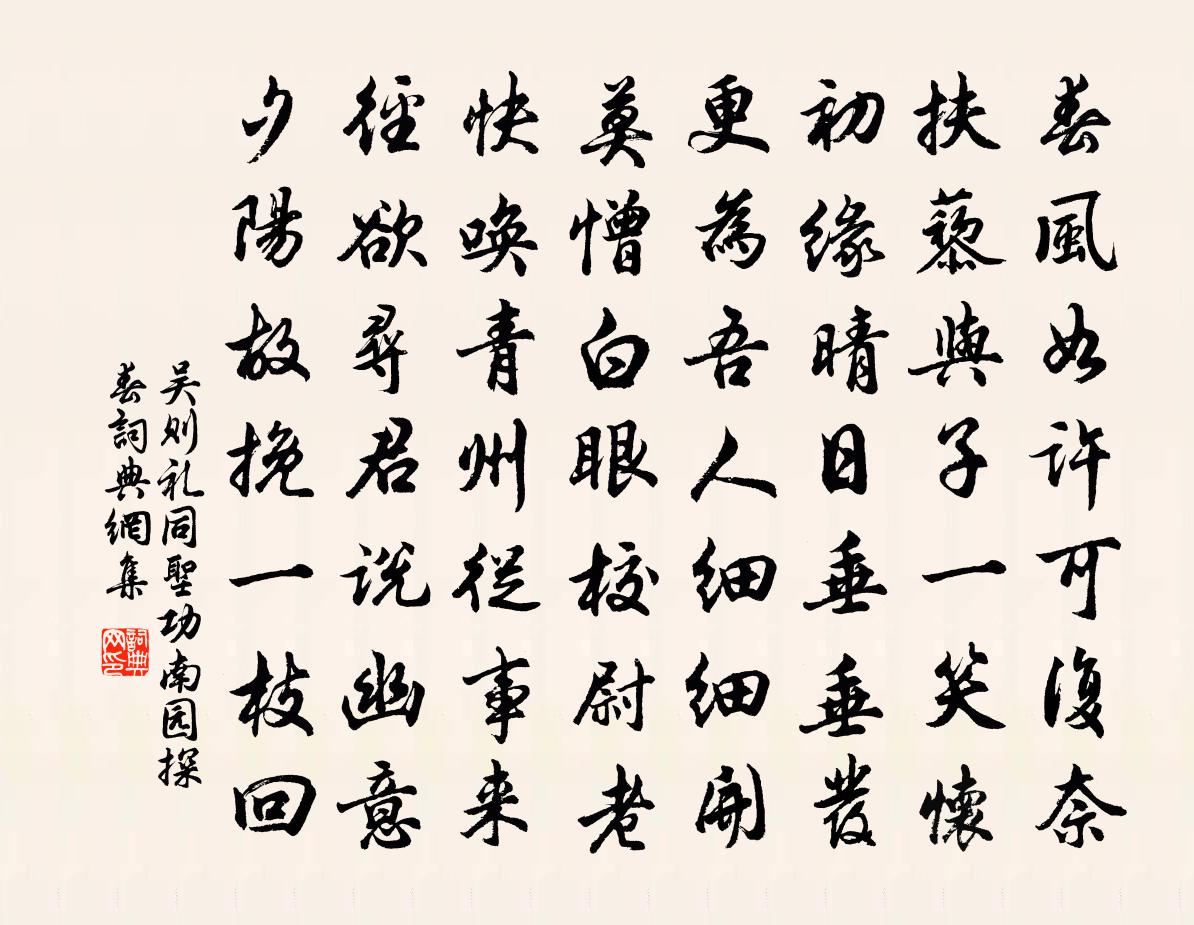 春風如许可復奈
扶藜與子一笑懷
初緣晴日垂垂發
更為吾人細細開
莫憎白眼校尉老
快喚青州從事来
徑欲尋君説幽意
夕陽故挽一枝回
吴则礼同聖功南园探
春詞典網集
詞典网印